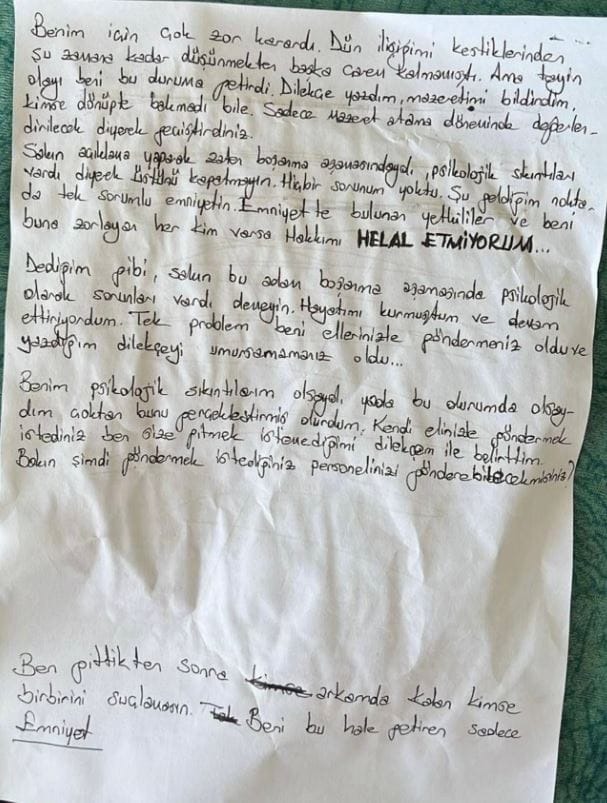 Benim için çok zor karardı. Dün ilişiğimi kestiklerinden
şu zamana kadar düşünmekten başka çarem kalmamıştı. Ama tayin
olayı beni bu duruma getirdi. Dilekçe yazdım, mazeretimi bildirdim,
kimse dönüpte bakmadı bile. Sadece mazeret atama döneminde değerlen-
dirilecek diyerek geçiştirdiniz.
Sakın açıklama yaparak zaten boşanma aşamasındaydı, psikolojik sıkıntıları
vardı diyerek üstünü kapatmayın. Hiçbir sorunum yoktu. Şu geldiğim nokta-
da tek sorumlu emniyetin. Emniyette bulunan yetkililer ve beni
buna zorlayan her kim varsa Hakkımı HELAL ETMİYORUM...
Dediğim gibi, sakın bu adam boşanma aşamasında psikolojik
olarak sorunları vardı demeyin. Hayatımı kurmuştum ve devam
ettiriyordum. Tek problem beni ellerinizle göndermeniz oldu ve
yazdığım dilekçeyi umursamamanız oldu...
Benim psikolojik sıkıntılarım olsaydı, yada bu durumda olsay-
dım çoktan bunu gerçekleştirmiş olurdum. Kendi elinizle göndermek
istediniz ben size gitmek istemediğimi dilekçem ile belirttim.
Bakın şimdi göndermek istediğiniz personelinizi gönderebilecekmisiniz?
Ben gittikten sonra arkamda kalan kimse
birbirini suçlamasın. Beni bu hale getiren sadece
Emniyet